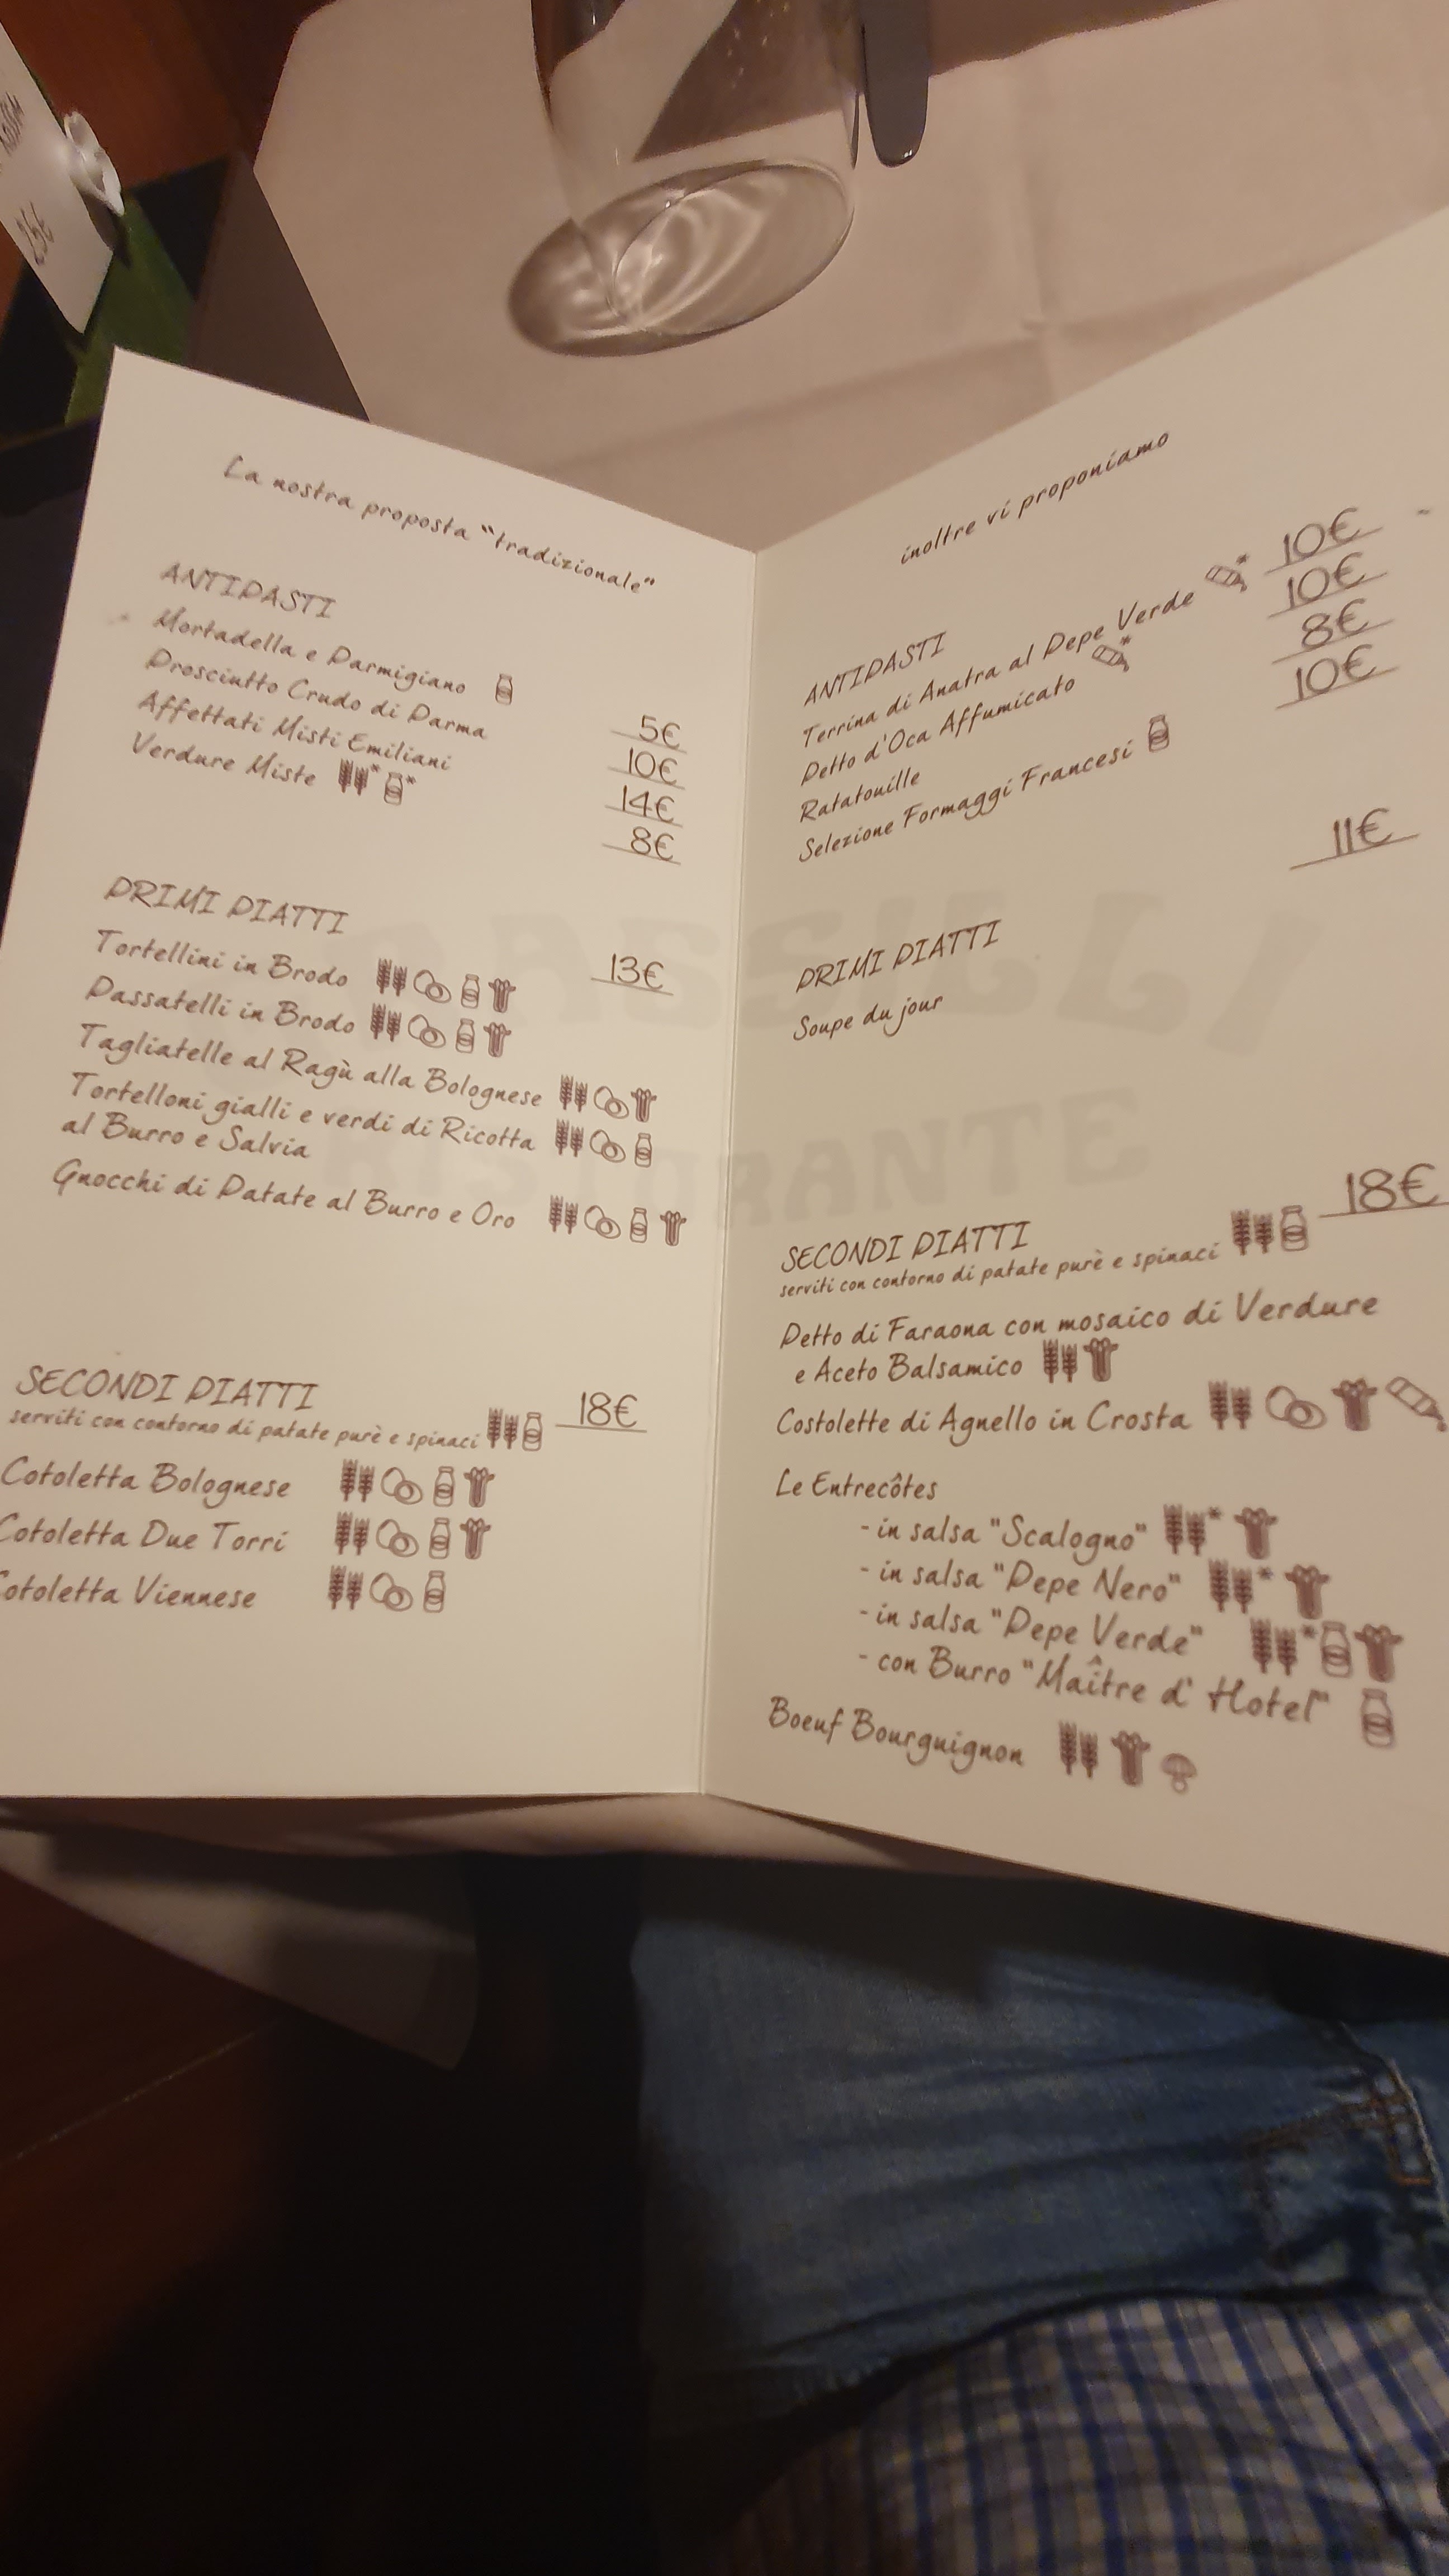 25€
La nostra proposta "tradizionale"
ANTIPASTI
Mortadella e Parmigiano
Prosciutto Crudo di Parma
Affettati Misti Emiliani
Verdure Miste * *
5€
10€
14€
8€
PRIMI PIATTI
13€
Tortellini in Brodo
Passatelli in Brodo
Tagliatelle al Ragù alla Bolognese
Tortelloni gialli e verdi di Ricotta
al Burro e Salvia
Gnocchi di Patate al Burro e Oro
SECONDI PIATTI 18€
serviti con contorno di patate purè e spinaci
Cotoletta Bolognese
Cotoletta Due Torri
Cotoletta Viennese
inoltre vi proponiamo
ANTIPASTI
Terrina di Anatra al Pepe Verde * 10€
Petto d'Oca Affumicato * 10€
Ratatouille 8€
Selezione Formaggi Francesi 10€
PRIMI PIATTI 11€
Soupe du jour
SECONDI PIATTI 18€
serviti con contorno di patate purè e spinaci
Petto di Faraona con mosaico di Verdure
e Aceto Balsamico
Costolette di Agnello in Crosta
Le Entrecôtes
- in salsa "Scalogno" *
- in salsa "Pepe Nero" *
- in salsa "Pepe Verde" *
- con Burro "Maître d' Hotel"
Boeuf Bourguignon
RISTORANTE